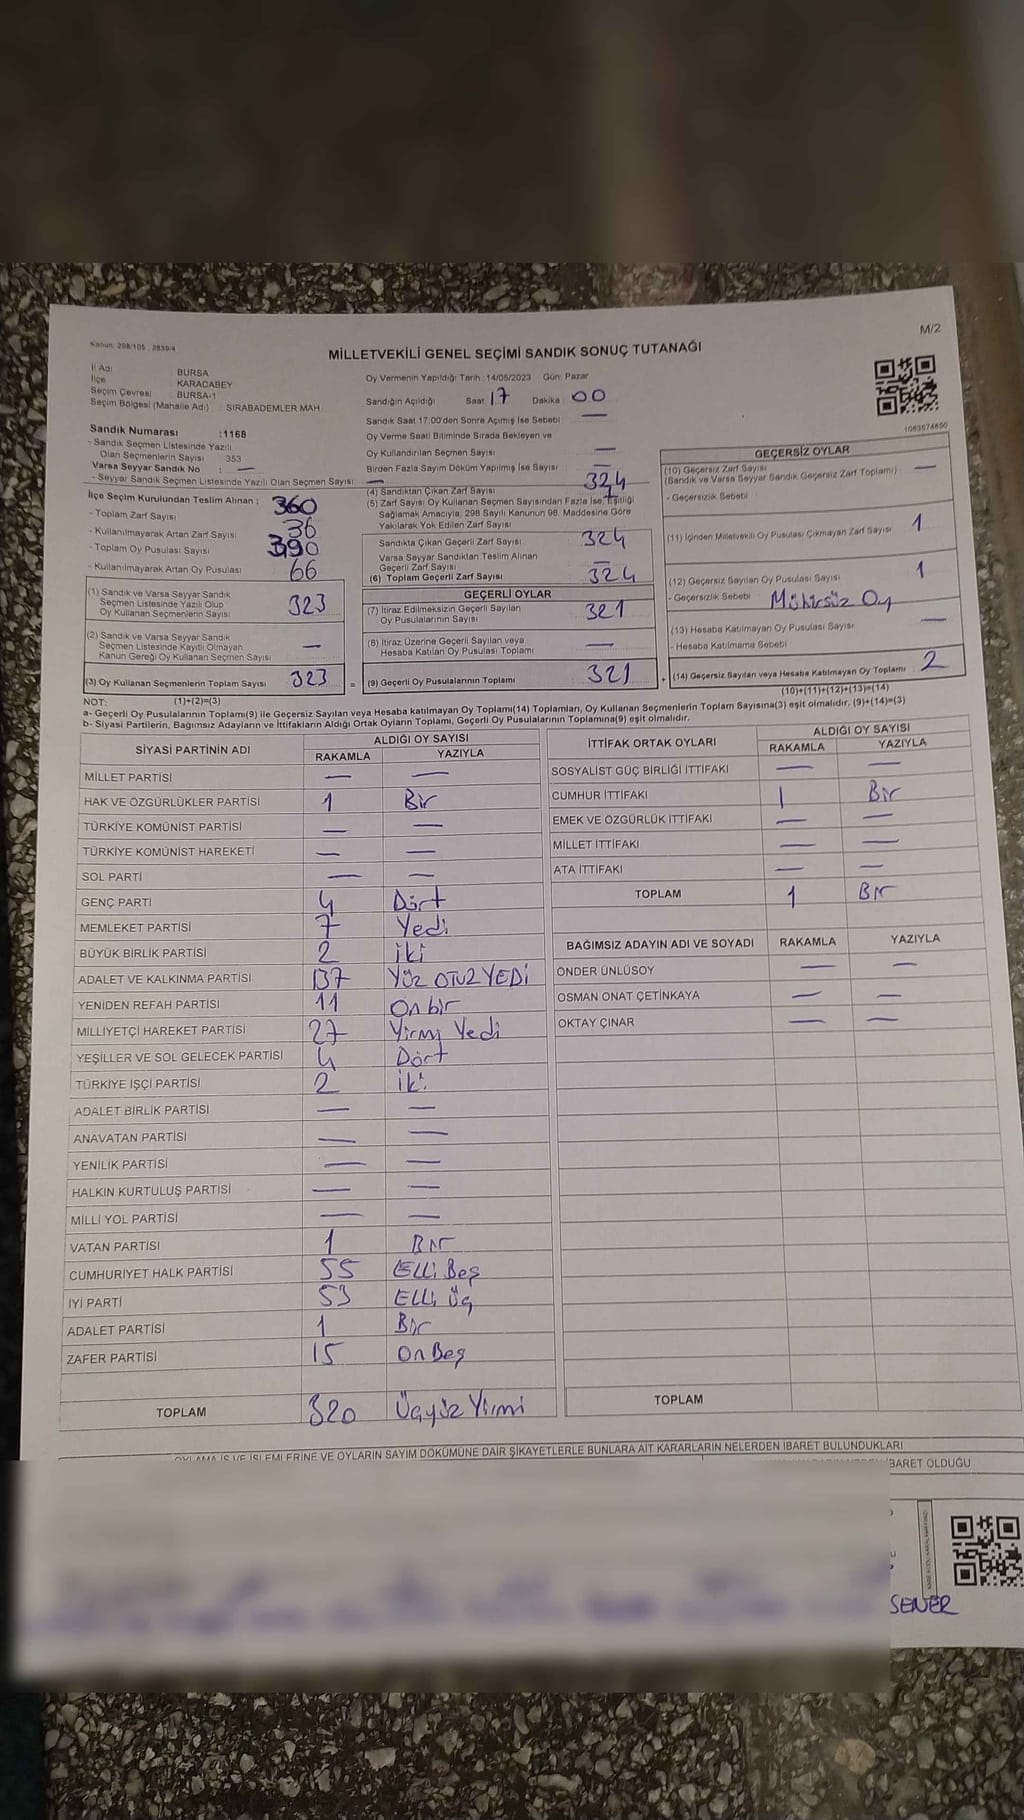 M/2
Kanun: 298/105 , 2839/4
MİLLETVEKİLİ GENEL SEÇİMİ SANDIK SONUÇ TUTANAĞI
İl Adı BURSA
İlçe KARACABEY
Seçim Çevresi BURSA-1
Seçim Bölgesi (Mahalle Adı) SIRABADEMLER MAH.
Sandık Numarası :1168
- Sandık Seçmen Listesinde Yazılı
Olan Seçmenlerin Sayısı 353
Varsa Seyyar Sandık No : —
- Seyyar Sandık Seçmen Listesinde Yazılı Olan Seçmen Sayısı: —
İlçe Seçim Kurulundan Teslim Alınan ;
- Toplam Zarf Sayısı 360
- Kullanılmayarak Artan Zarf Sayısı 36
- Toplam Oy Pusulası Sayısı 390
- Kullanılmayarak Artan Oy Pusulası 66
(1) Sandık ve Varsa Seyyar Sandık
Seçmen Listesinde Yazılı Olup
Oy Kullanan Seçmenlerin Sayısı 323
(2) Sandık ve Varsa Seyyar Sandık
Seçmen Listesinde Kayıtlı Olmayan
Kanun Gereği Oy Kullanan Seçmen Sayısı —
(3) Oy Kullanan Seçmenlerin Toplam Sayısı 323
Oy Vermenin Yapıldığı Tarih :14/05/2023 Gün: Pazar
Sandığın Açıldığı Saat 17 Dakika 00
Sandık Saat 17:00'den Sonra Açılmış İse Sebebi —
Oy Verme Saati Bitiminde Sırada Bekleyen ve
Oy Kullandırılan Seçmen Sayısı —
Birden Fazla Sayım Döküm Yapılmış İse Sayısı —
(4) Sandıktan Çıkan Zarf Sayısı 324
(5) Zarf Sayısı Oy Kullanan Seçmen Sayısından Fazla İse, Eşitliği
Sağlamak Amacıyla; 298 Sayılı Kanunun 98. Maddesine Göre
Yakılarak Yok Edilen Zarf Sayısı
Sandıkta Çıkan Geçerli Zarf Sayısı 324
Varsa Seyyar Sandıktan Teslim Alınan
Geçerli Zarf Sayısı —
(6) Toplam Geçerli Zarf Sayısı 324
GEÇERLİ OYLAR
(7) İtiraz Edilmeksizin Geçerli Sayılan
Oy Pusulalarının Sayısı 321
(8) İtiraz Üzerine Geçerli Sayılan veya
Hesaba Katılan Oy Pusulası Toplamı —
= (9) Geçerli Oy Pusulalarının Toplamı 321
1083574650
GEÇERSİZ OYLAR
(10) Geçersiz Zarf Sayısı
(Sandık ve Varsa Seyyar Sandık Geçersiz Zarf Toplamı) —
- Geçersizlik Sebebi
(11) İçinden Milletvekili Oy Pusulası Çıkmayan Zarf Sayısı 1
(12) Geçersiz Sayılan Oy Pusulası Sayısı 1
- Geçersizlik Sebebi Mühirsüz Oy
(13) Hesaba Katılmayan Oy Pusulası Sayısı —
- Hesaba Katılmama Sebebi
+ (14) Geçersiz Sayılan veya Hesaba Katılmayan Oy Toplamı 2
NOT: (1)+(2)=(3) (10)+(11)+(12)+(13)=(14)
a- Geçerli Oy Pusulalarının Toplamı(9) ile Geçersiz Sayılan veya Hesaba katılmayan Oy Toplamı(14) Toplamları, Oy Kullanan Seçmenlerin Toplam Sayısına(3) eşit olmalıdır. (9)+(14)=(3)
b- Siyasi Partilerin, Bağımsız Adayların ve İttifakların Aldığı Ortak Oyların Toplamı, Geçerli Oy Pusulalarının Toplamına(9) eşit olmalıdır.
SİYASİ PARTİNİN ADI ALDIĞI OY SAYISI
RAKAMLA YAZIYLA
MİLLET PARTİSİ — —
HAK VE ÖZGÜRLÜKLER PARTİSİ 1 Bir
TÜRKİYE KOMÜNİST PARTİSİ — —
TÜRKİYE KOMÜNİST HAREKETİ — —
SOL PARTİ — —
GENÇ PARTİ 4 Dört
MEMLEKET PARTİSİ 7 Yedi
BÜYÜK BİRLİK PARTİSİ 2 iki
ADALET VE KALKINMA PARTİSİ 137 YÜZ OTUZ YEDİ
YENİDEN REFAH PARTİSİ 11 On bir
MİLLİYETÇİ HAREKET PARTİSİ 27 Yirmi Yedi
YEŞİLLER VE SOL GELECEK PARTİSİ 4 Dört
TÜRKİYE İŞÇİ PARTİSİ 2 iki
ADALET BİRLİK PARTİSİ — —
ANAVATAN PARTİSİ — —
YENİLİK PARTİSİ — —
HALKIN KURTULUŞ PARTİSİ — —
MİLLİ YOL PARTİSİ — —
VATAN PARTİSİ 1 Bir
CUMHURİYET HALK PARTİSİ 55 Elli Beş
İYİ PARTİ 53 Elli üç
ADALET PARTİSİ 1 Bir
ZAFER PARTİSİ 15 On Beş
TOPLAM 320 Üçyüz Yirmi
İTTİFAK ORTAK OYLARI ALDIĞI OY SAYISI
RAKAMLA YAZIYLA
SOSYALİST GÜÇ BİRLİĞİ İTTİFAKI — —
CUMHUR İTTİFAKI 1 Bir
EMEK VE ÖZGÜRLÜK İTTİFAKI — —
MİLLET İTTİFAKI — —
ATA İTTİFAKI — —
TOPLAM 1 Bir
BAĞIMSIZ ADAYIN ADI VE SOYADI RAKAMLA YAZIYLA
ÖNDER ÜNLÜSOY — —
OSMAN ONAT ÇETİNKAYA — —
OKTAY ÇINAR — —
TOPLAM
OYLAMA İŞ VE İŞLEMLERİNE VE OYLARIN SAYIM DÖKÜMÜNE DAİR ŞİKAYETLERLE BUNLARA AİT KARARLARIN NELERDEN İBARET BULUNDUKLARI
İBARET OLDUĞU
SENER